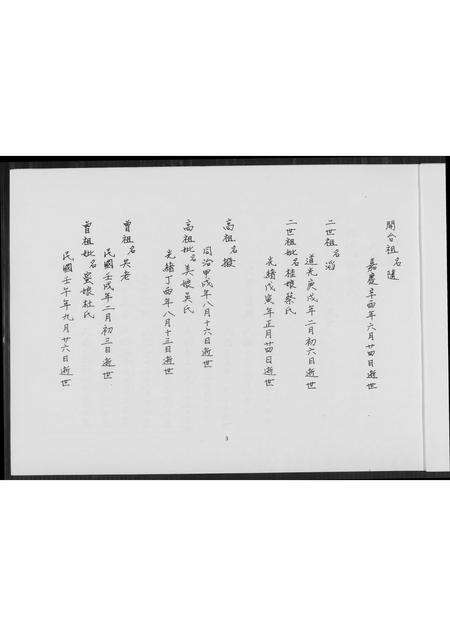 開台祖名隨
嘉慶辛酉年六月廿四日逝世
二世祖名滔
道光庚戌年二月初六日逝世
二世祖妣名桂娘蔡氏
光緒戊寅年正月廿四日逝世
高祖名撥
同治甲戌年八月十六日逝世
高祖妣名美娘吳氏
光緒丁酉年八月十三日逝世
曾祖名吳老
民國壬戌年二月初三日逝世
曾祖妣名蜜娘杜氏
民國壬午年九月廿六日逝世
3